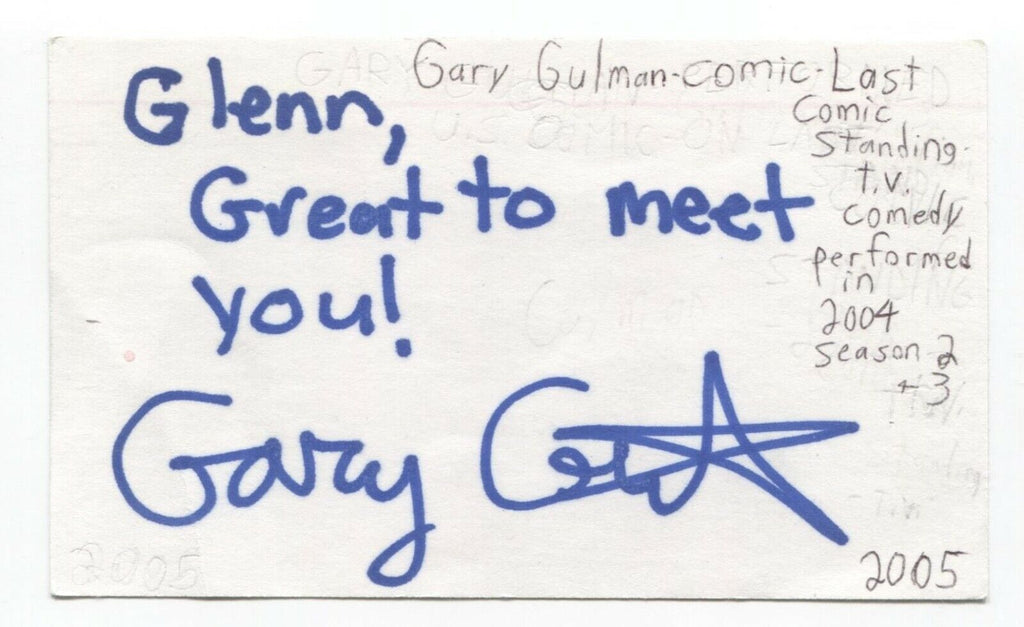 Gary Gulman-comic-Last
Comic
Standing-
t.v.
comedy
performed
in
2004
season 2
+3
Glenn,
Great to meet
you!
Gary
2005
2005